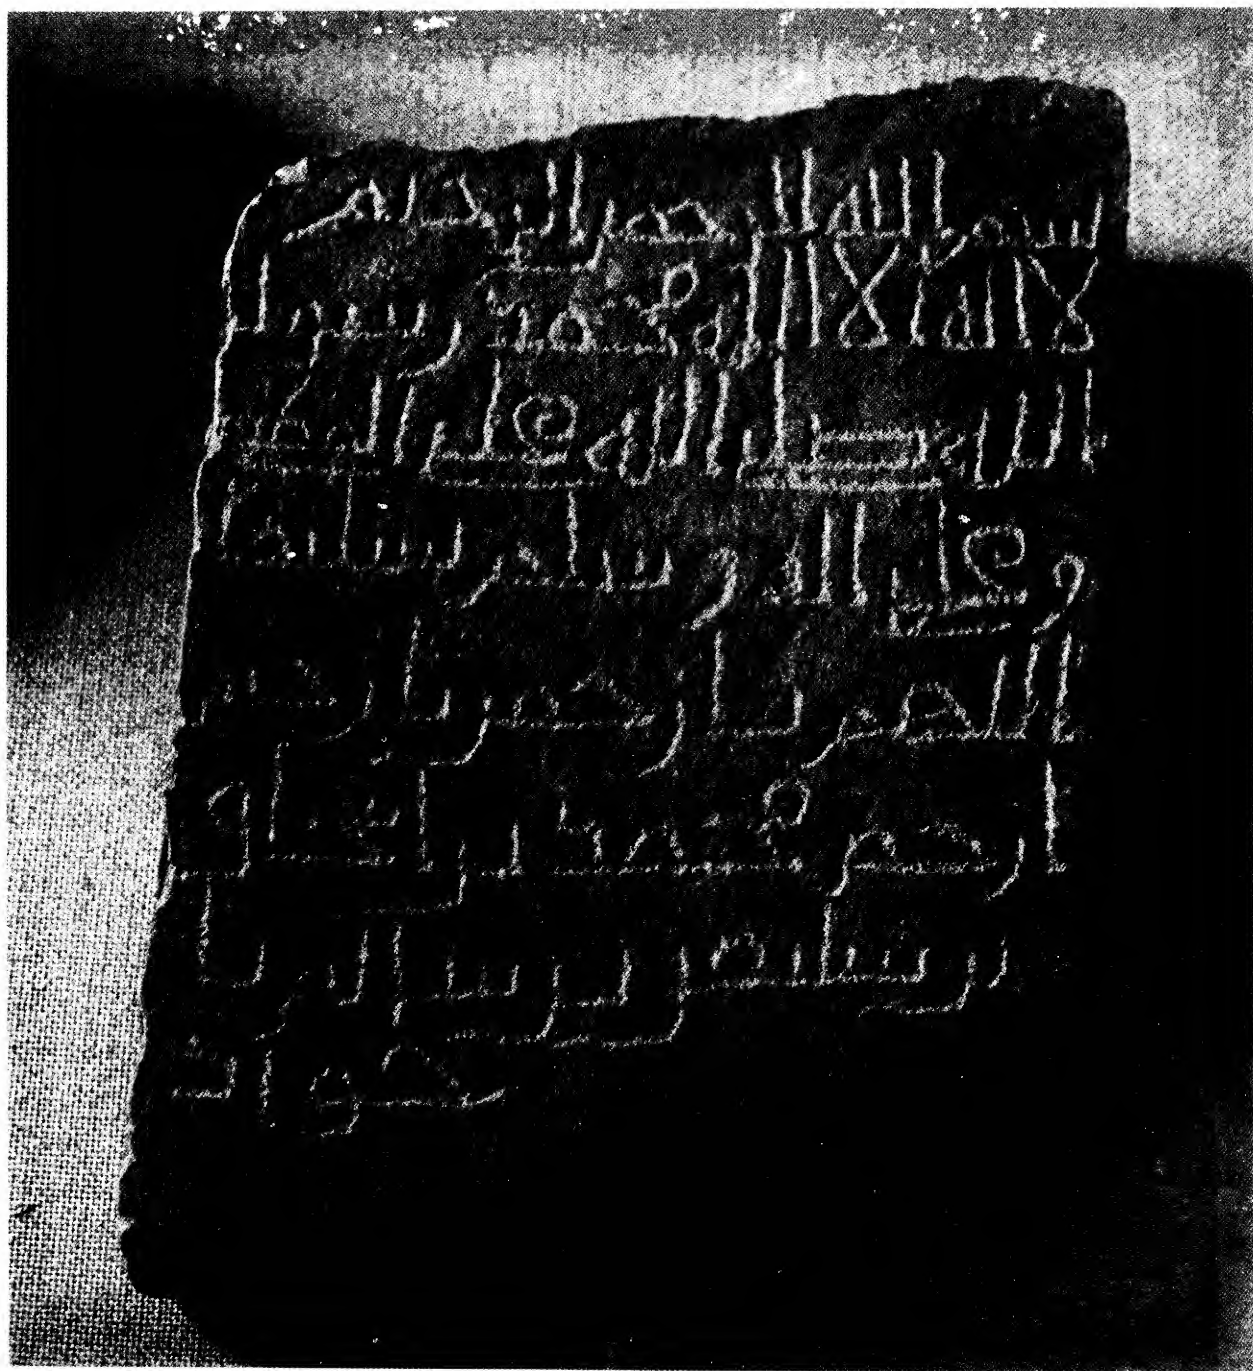 بسم الله الرحمن الرحيم
لا اله الا الله محمد رسول
الله صلى الله على
وعلى اله وسلم تسليما
اللهم يا رحمن يا رحيم
ارحم محمد بن اسحاق
بن سليمن بن